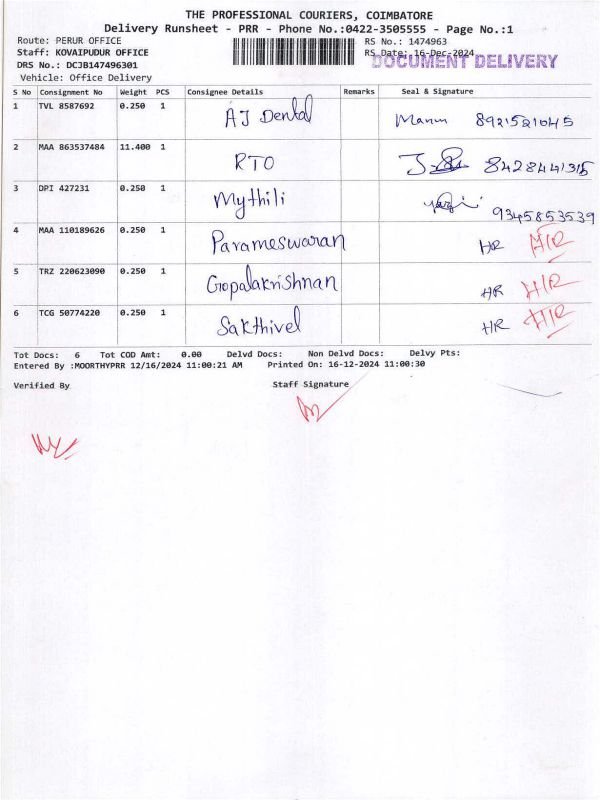 THE PROFESSIONAL COURIERS, COIMBATORE
Delivery Runsheet - PRR - Phone No.:0422-3505555 - Page No.:1
Route: PERUR OFFICE RS No.: 1474963
Staff: KOVAIPUDUR OFFICE RS Date: 16-Dec-2024
DOCUMENT DELIVERY
DRS No.: DCJB147496301
Vehicle: Office Delivery
S No Consignment No Weight PCS Consignee Details Remarks Seal & Signature
1 TVL 8587692 0.250 1 AJ Dental 8921521045
2 MAA 863537484 11.400 1 RTO 8428441315
3 DPI 427231 0.250 1 Mythili 9345853539
4 MAA 110189626 0.250 1 Parameswaran HR H/R
5 TRZ 220623090 0.250 1 Gopalakrishnan HR H/R
6 TCG 50774220 0.250 1 Sakthivel HR H/R
Tot Docs: 6 Tot COD Amt: 0.00 Delvd Docs: Non Delvd Docs: Delvy Pts:
Entered By :MOORTHYPRR 12/16/2024 11:00:21 AM Printed On: 16-12-2024 11:00:30
Verified By Staff Signature